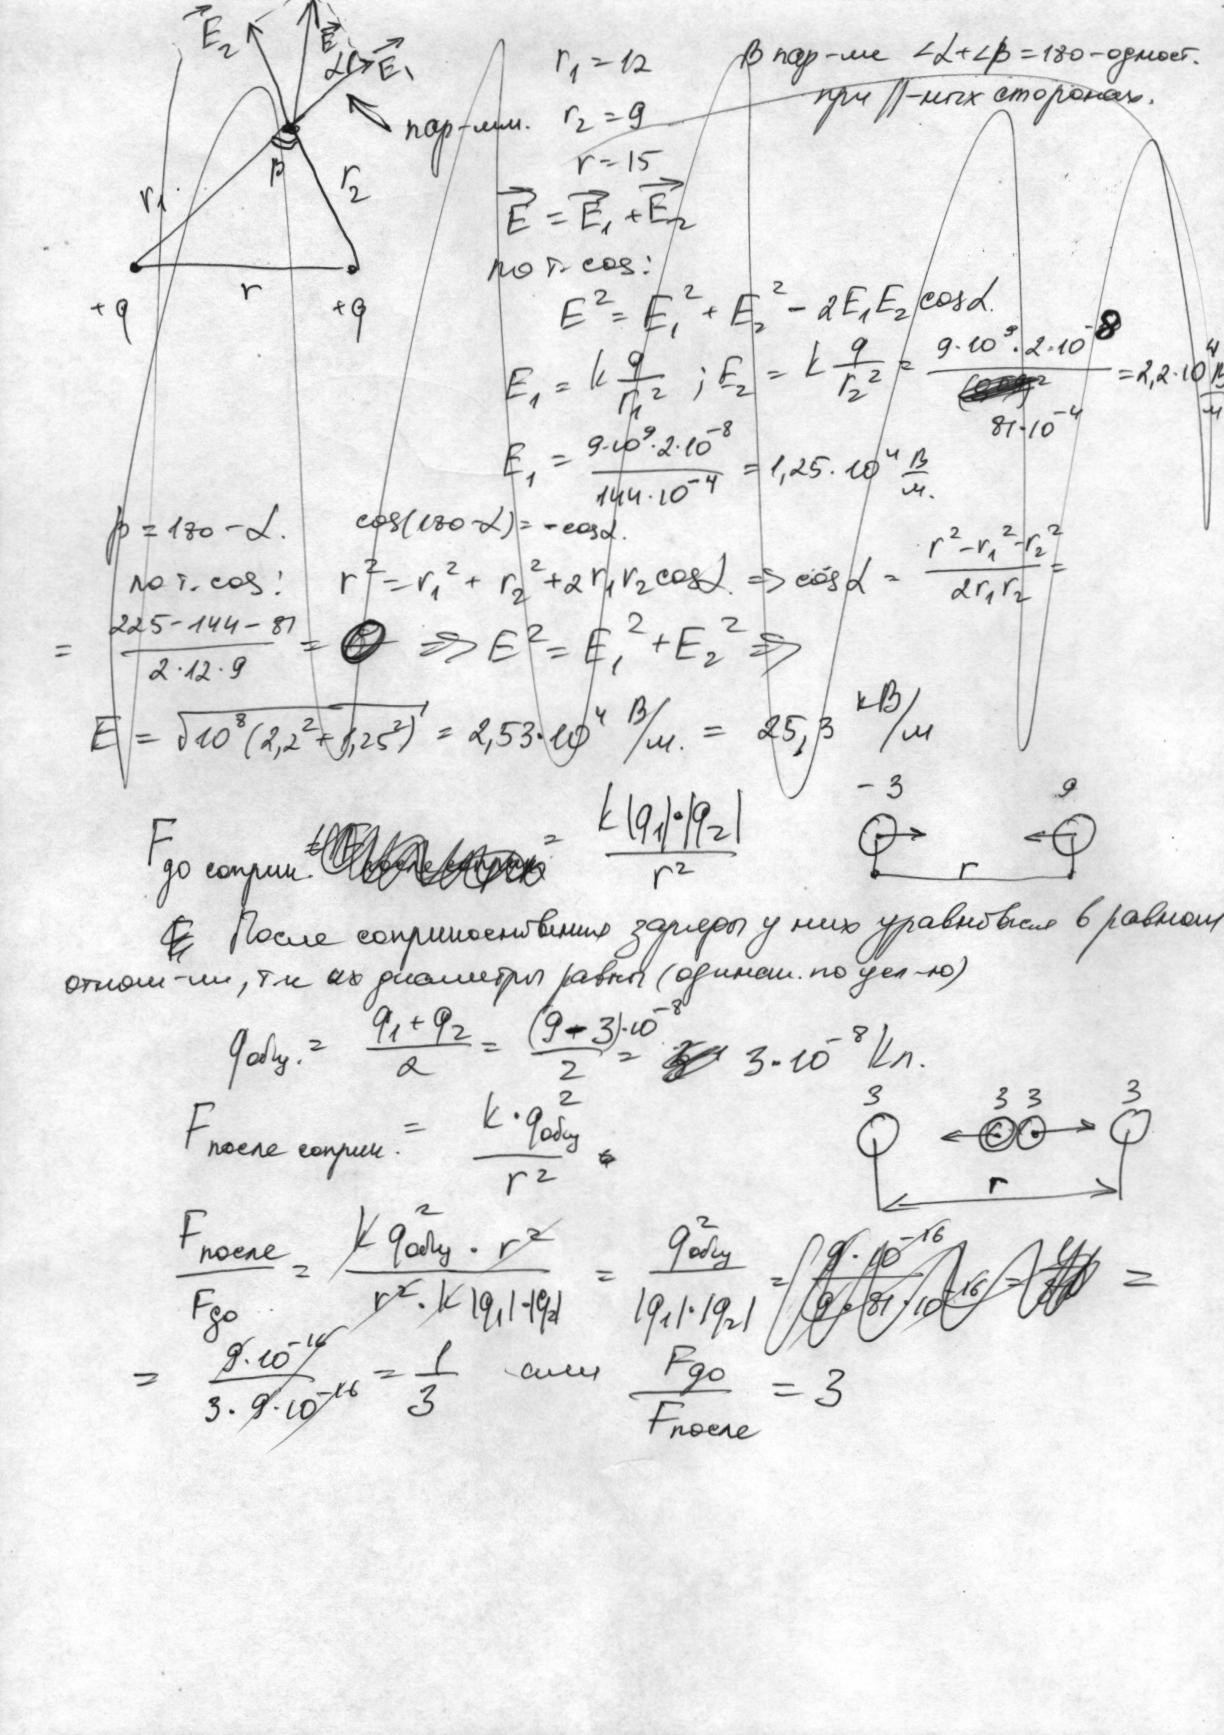 E⃗₂ E⃗ α E⃗₁
r₁ = 12
В пар-ме ∠α+∠β = 180 - одност.
при ∥-ных сторонах.
пар-мм. r₂ = 9
β r₁ r₂
r = 15
E⃗ = E⃗₁ + E⃗₂
по т. cos:
+q r +q
E² = E₁² + E₂² - 2E₁E₂ cosα.
E₁ = k q/r₁² ; E₂ = k q/r₂² = 9·10⁹·2·10⁻⁸/81·10⁻⁴ = 2,2·10⁴ В/м
E₁ = 9·10⁹·2·10⁻⁸/144·10⁻⁴ = 1,25·10⁴ В/м.
β = 180 - α. cos(180-α) = -cosα.
по т. cos: r² = r₁² + r₂² + 2r₁r₂ cosα ⇒ cosα = r²-r₁²-r₂²/2r₁r₂ =
= 225-144-81/2·12·9 = 0 ⇒ E² = E₁² + E₂² ⇒
E = √10⁸(2,2²+1,25²) = 2,53·10⁴ В/м. = 25,3 кВ/м
-3 9
F до соприк. = k|q₁|·|q₂|/r²
r
После соприкосновения заряды у них уравновесятся в равном
отнош-ии, т.к их диаметры равны (одинак. по усл-ю)
q общ. = q₁+q₂/2 = (9-3)·10⁻⁸/2 = 3·10⁻⁸ Кл.
3 3 3 3
F после соприк. = k·q общ²/r²
r
F после/F до = k q общ²·r²/r²·k|q₁|·|q₂| = q общ²/|q₁|·|q₂| = =
= 9·10⁻¹⁶/3·9·10⁻¹⁶ = 1/3 или F до/F после = 3